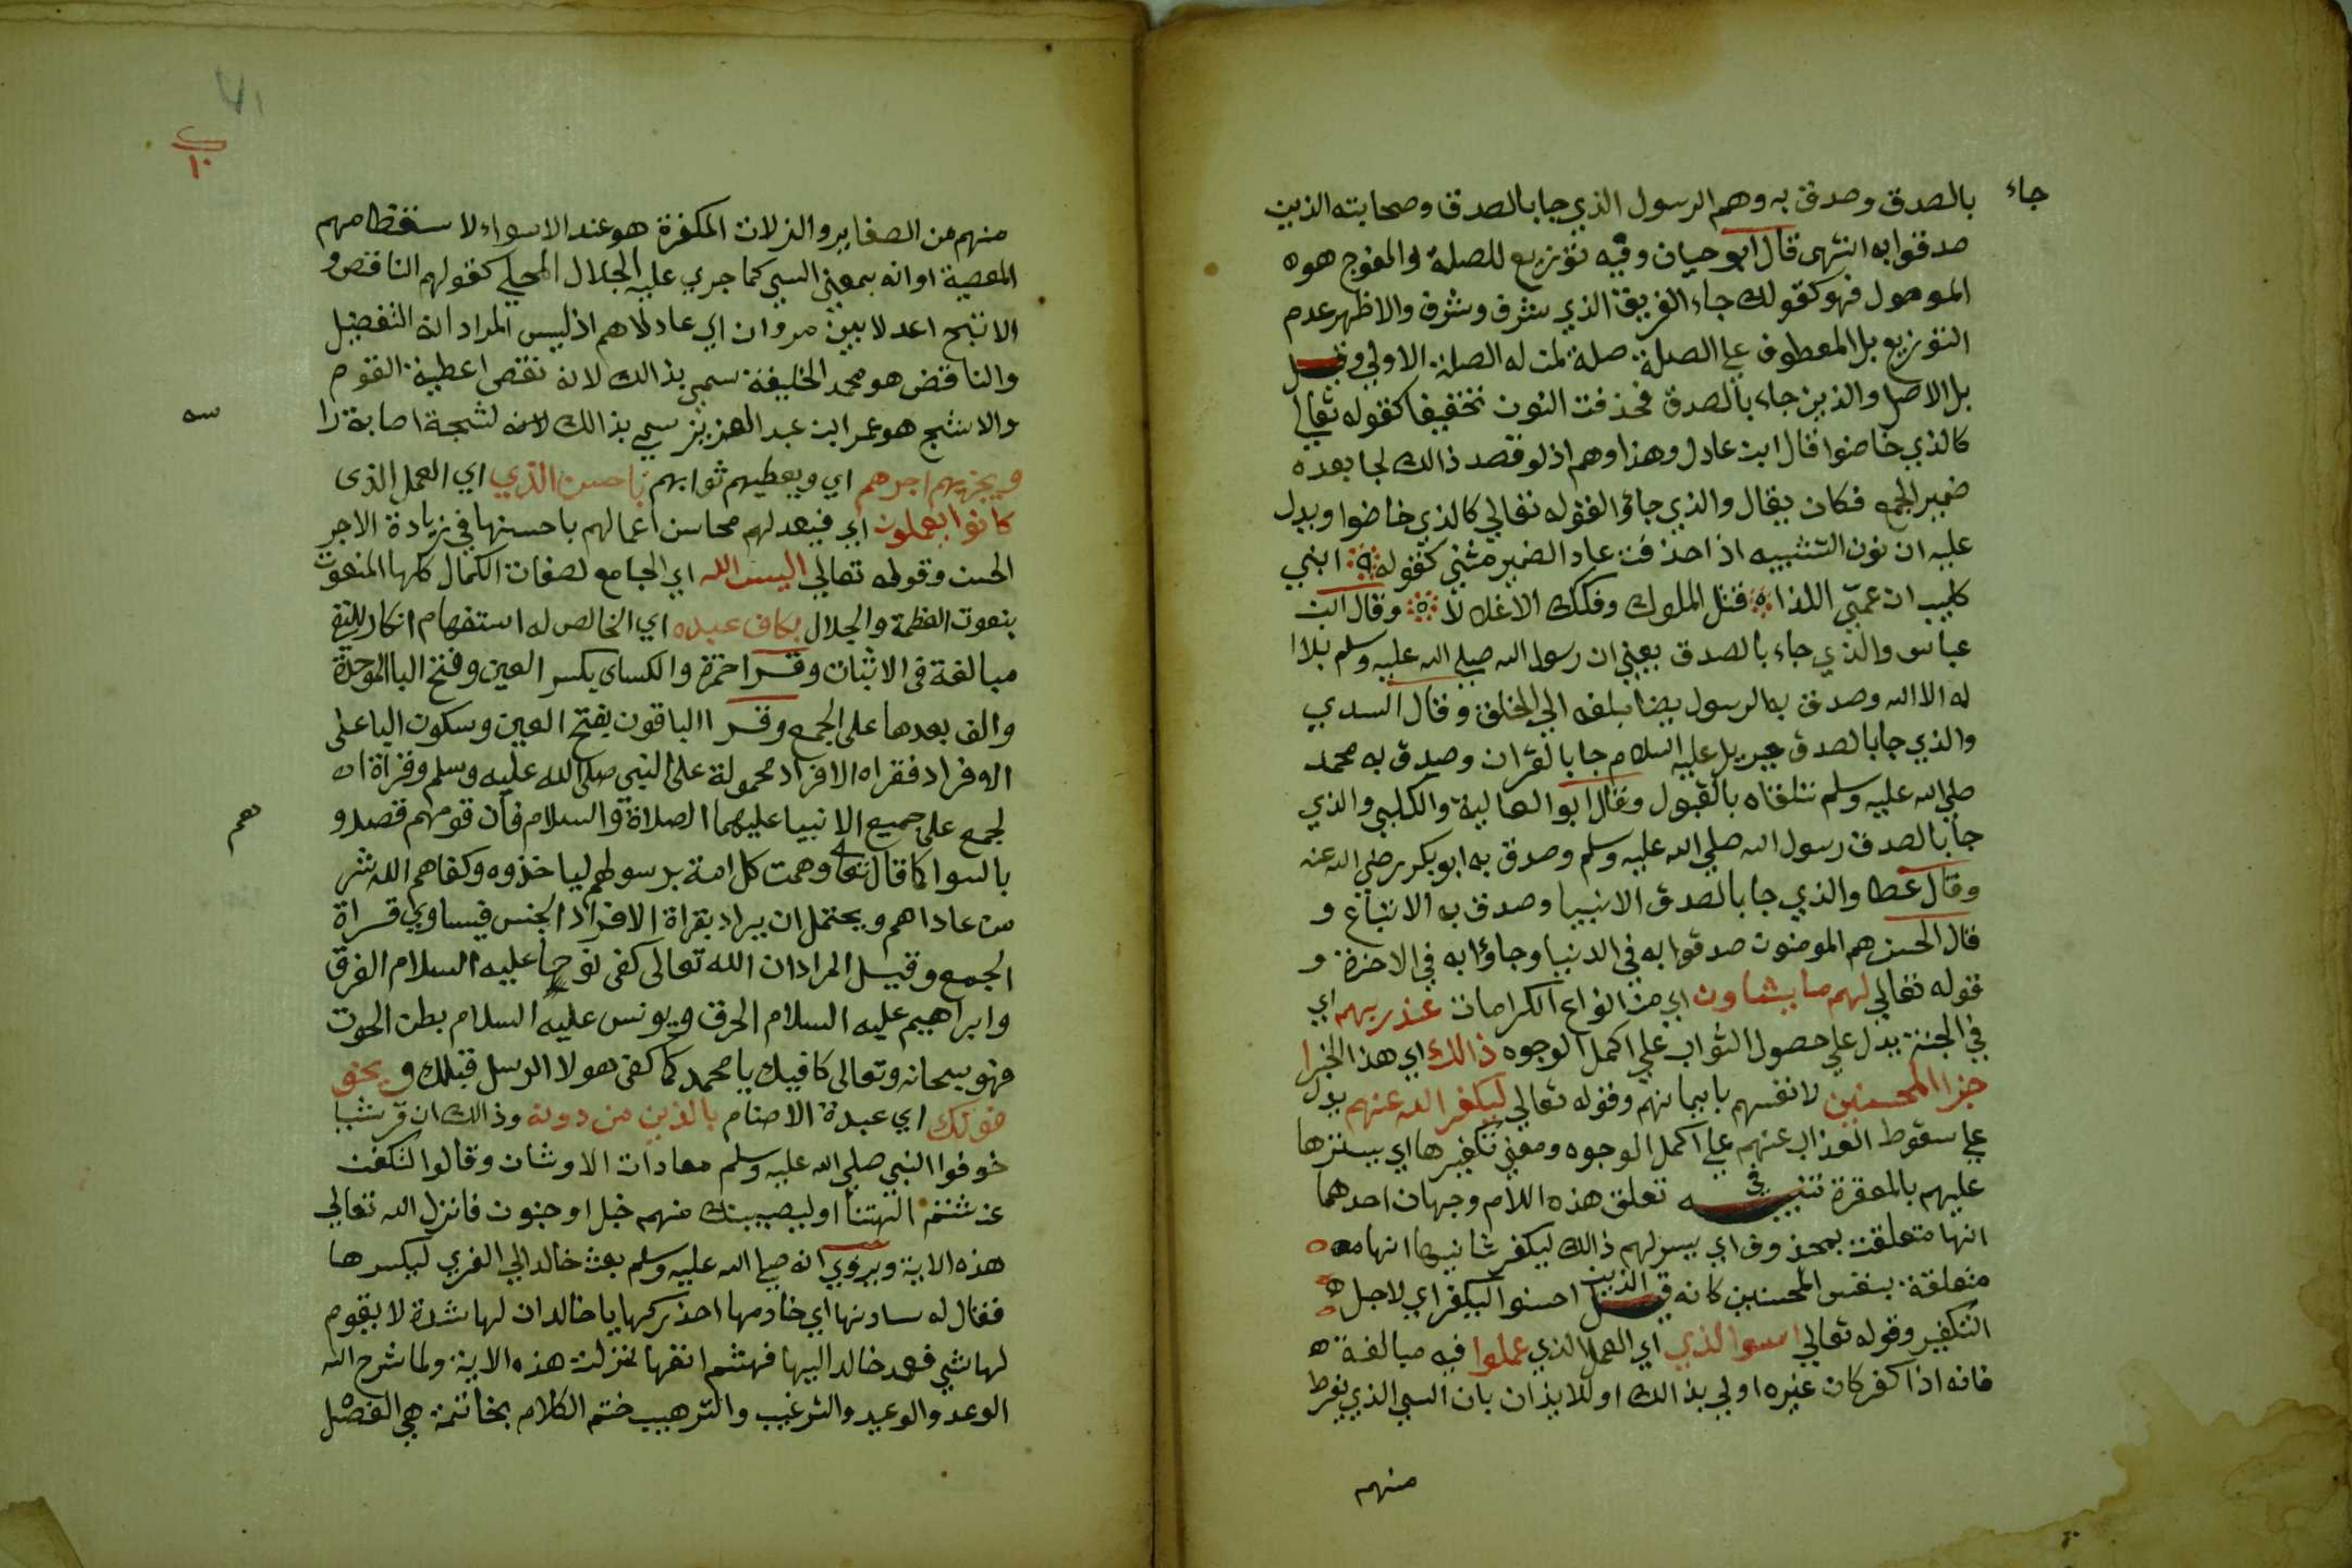 جاء
بالصدق وصدق به وهم الرسول الذي جا بالصدق وصحابته الذين
صدقوا به انتهى قال ابو حيان وفيه توزيع للصلة والفوج هو ه
الموصول فهو كقولك جاء الفريق الذي شرف وشرف والاظهر عدم
التوزيع بل المعطوف علي الصلة صلة لمن له الصلة الاولي وقيل
بل الاصل والذين جاء بالصدق فحذفت النون تخفيفا كقوله تعالي
كالذي خاضوا قال ابن عادل وهذا وهم اذ لو قصد ذالك لجا بعده
ضمير الجمع فكان يقال والذي جاؤ القوله تعالي كالذي خاضوا ويدل
عليه ان نون التثنيه اذا حذفت عاد الضمير مثني كقوله ه ابني
كليب ان عمّي اللذا ه قتل الملوك وفكك الاغلالا ه وقال ابن
عباس والذي جاء بالصدق يعني ان رسول الله صلي الله عليه وسلم بلا ا
له الا الله وصدق به الرسول يضا بلغه الي الخلق وقال السدي
والذي جا بالصدق جبريل عليه السلام جا بالقران وصدق به محمد
صلي الله عليه وسلم تلقاه بالقبول وقال ابو العالية والكلبي والذي
جا بالصدق رسول الله صلي الله عليه وسلم وصدق به ابو بكر رضي الله عنه
وقال عطا والذي جا بالصدق الانبيا وصدق به الاتباع و
قال الحسن هم المومنون صدقوا به في الدنيا وجاؤا به في الاخرة و
قوله تعالي لهم ما يشاون اي من انواع الكرامات عند ربهم اي
في الجنة يدل علي حصول الثواب علي اكمل الوجوه ذالك اي هذا الجزا
جزا المحسنين لانفسهم بايمانهم وقوله تعالي ليكفر الله عنهم يدل
علي سقوط العذاب عنهم علي اكمل الوجوه ومعني تكفيرها اي يسترها
عليهم بالمغفرة تنبيه في تعلق هذه اللام وجهان احدهما
انها متعلقة بمحذوف اي يسر لهم ذالك ليكفر ثانيها انها مه ه
متعلقة بنفس المحسنين كانه قيل الذين احسنوا ليكفر اي لاجل ه
التكفير وقوله تعالي اسوا الذي اي العمل الذي عملوا فيه مبالغة ه
فانه اذا كفر كان غيره اولي بذالك او للايذان بان السي الذي يفرط
منهم
٧١
ب
١٠
منهم من الصغاير والزلات المكفرة هو عند الاسواء لاستعظامهم
المعصية او انه بمعني السي كما جري عليه الجلال المحلي كقولهم الناقص و
الاشج اعدلا بين مروان اي عادلاهم اذ ليس المراد انه التفضيل
والناقض هو محمد الخليفة سمي بذالك لانه نقص اعطية القوم
والاشج هو عمر ابن عبد العزيز سمي بذالك لانه لشجة اصابة را
سه
ويجزيهم اجرهم اي ويعطيهم ثوابهم باحسن الذي اي العمل الذى
كانوا يعملون اي فيعد لهم محاسن اعمالهم باحسنها في زيادة الاجر
الحسن وقوله تعالي اليس الله اي الجامع لصفات الكمال كلها المنعوت
بنعوت العظمة والجلال بكاف عبده اي الخالص له استفهام انكار للنفي
مبالغة في الاثبات وقرا حمزة والكساي بكسر العين وفتح البا الموحدة
والف بعدها على الجمع وقرا الباقون بفتح العين وسكون البا على
الافراد فقراه الافراد محمولة على النبي صلى الله عليه وسلم وقراة اه
لجمع على جميع الانبيا عليهما الصلاة والسلام فان قومهم قصدو
هم
بالسوا كما قال تعا وهمت كل امة برسولهم لياخذوه وكفاهم الله شر
من عاداهم ويحتمل ان يراد بقراة الافراد الجنس فيساوي قراة
الجمع وقيل المراد ان الله تعالى كفى نوحا عليه السلام الغرق
وابراهيم عليه السلام الحرق ويونس عليه السلام بطن الحوت
فهو سبحانه وتعالى كافيك يا محمد كما كفى هولا الرسل قبلك و يخو
فونك اي عبدة الاصنام بالذين من دونه وذالك ان قريشا
خوفوا النبي صلي الله عليه وسلم معادات الاوثان وقالوا لتكفن
عن شتم الهتنا او ليصيبنك منهم خبل او جنون فانزل الله تعالي
هذه الاية ويروي انه صلي الله عليه وسلم بعث خالد الي العزي ليكسرها
فقال له سادنها اي خادمها احذركها يا خالد ان لها شدة لا يقوم
لها شي فعمد خالد اليها فهشم انفها فنزلت هذه الاية ولما شرح الله
الوعد والوعيد والترغيب والترهيب ختم الكلام بخاتمة هي الفصل